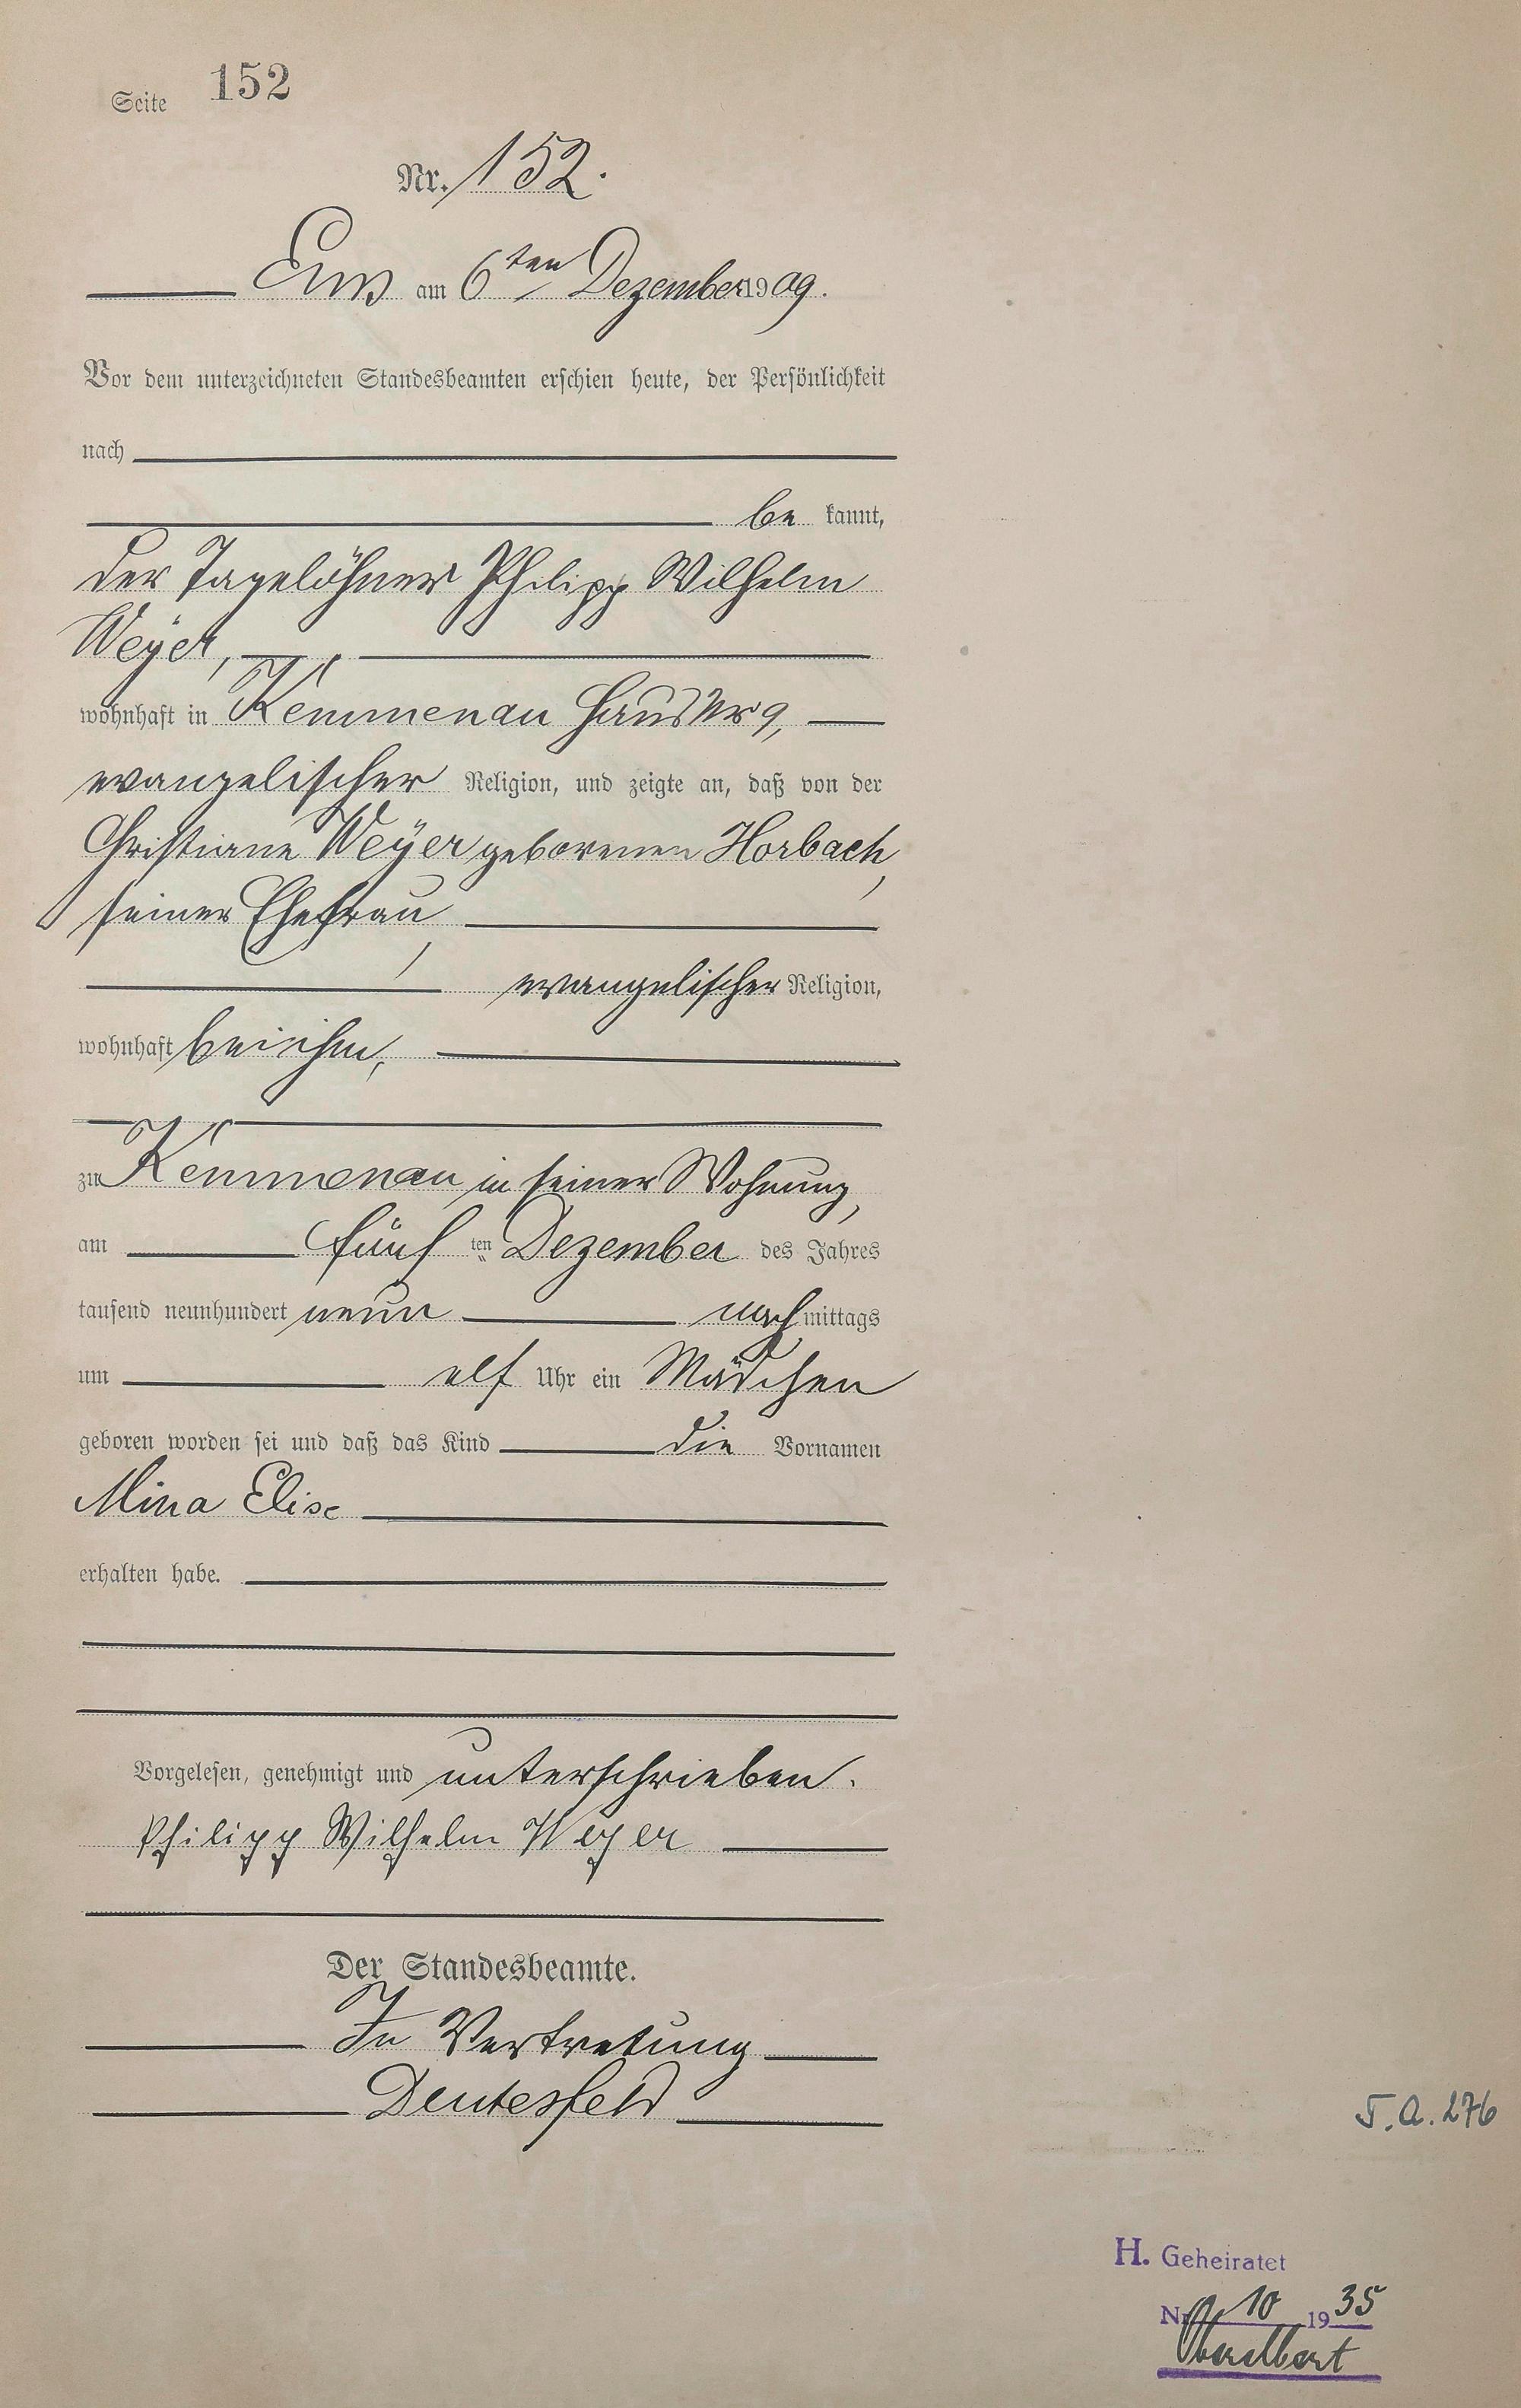 Seite 152
Nr. 152.
Ems am 6ten Dezember 1909.
Vor dem unterzeichneten Standesbeamten erschien heute, der Persönlichkeit
nach
be kannt,
der Tagelöhner Philipp Wilhelm
Weyer,
wohnhaft in Kemmenau Haus Nr 9,
evangelischer Religion, und zeigte an, daß von der
Christiane Weyer geborenen Horbach,
seiner Ehefrau,
evangelischer Religion,
wohnhaft bei ihm,
zu Kemmenau in seiner Wohnung,
am fünf ten Dezember des Jahres
tausend neunhundert neun nach mittags
um elf Uhr ein Mädchen
geboren worden sei und daß das Kind die Vornamen
Mina Elise
erhalten habe.
Vorgelesen, genehmigt und unterschrieben.
Philipp Wilhelm Weyer
Der Standesbeamte.
In Vertretung
Deutesfeld
T.A. 276
H. Geheiratet
Nr. 10 1935
Oberelbert